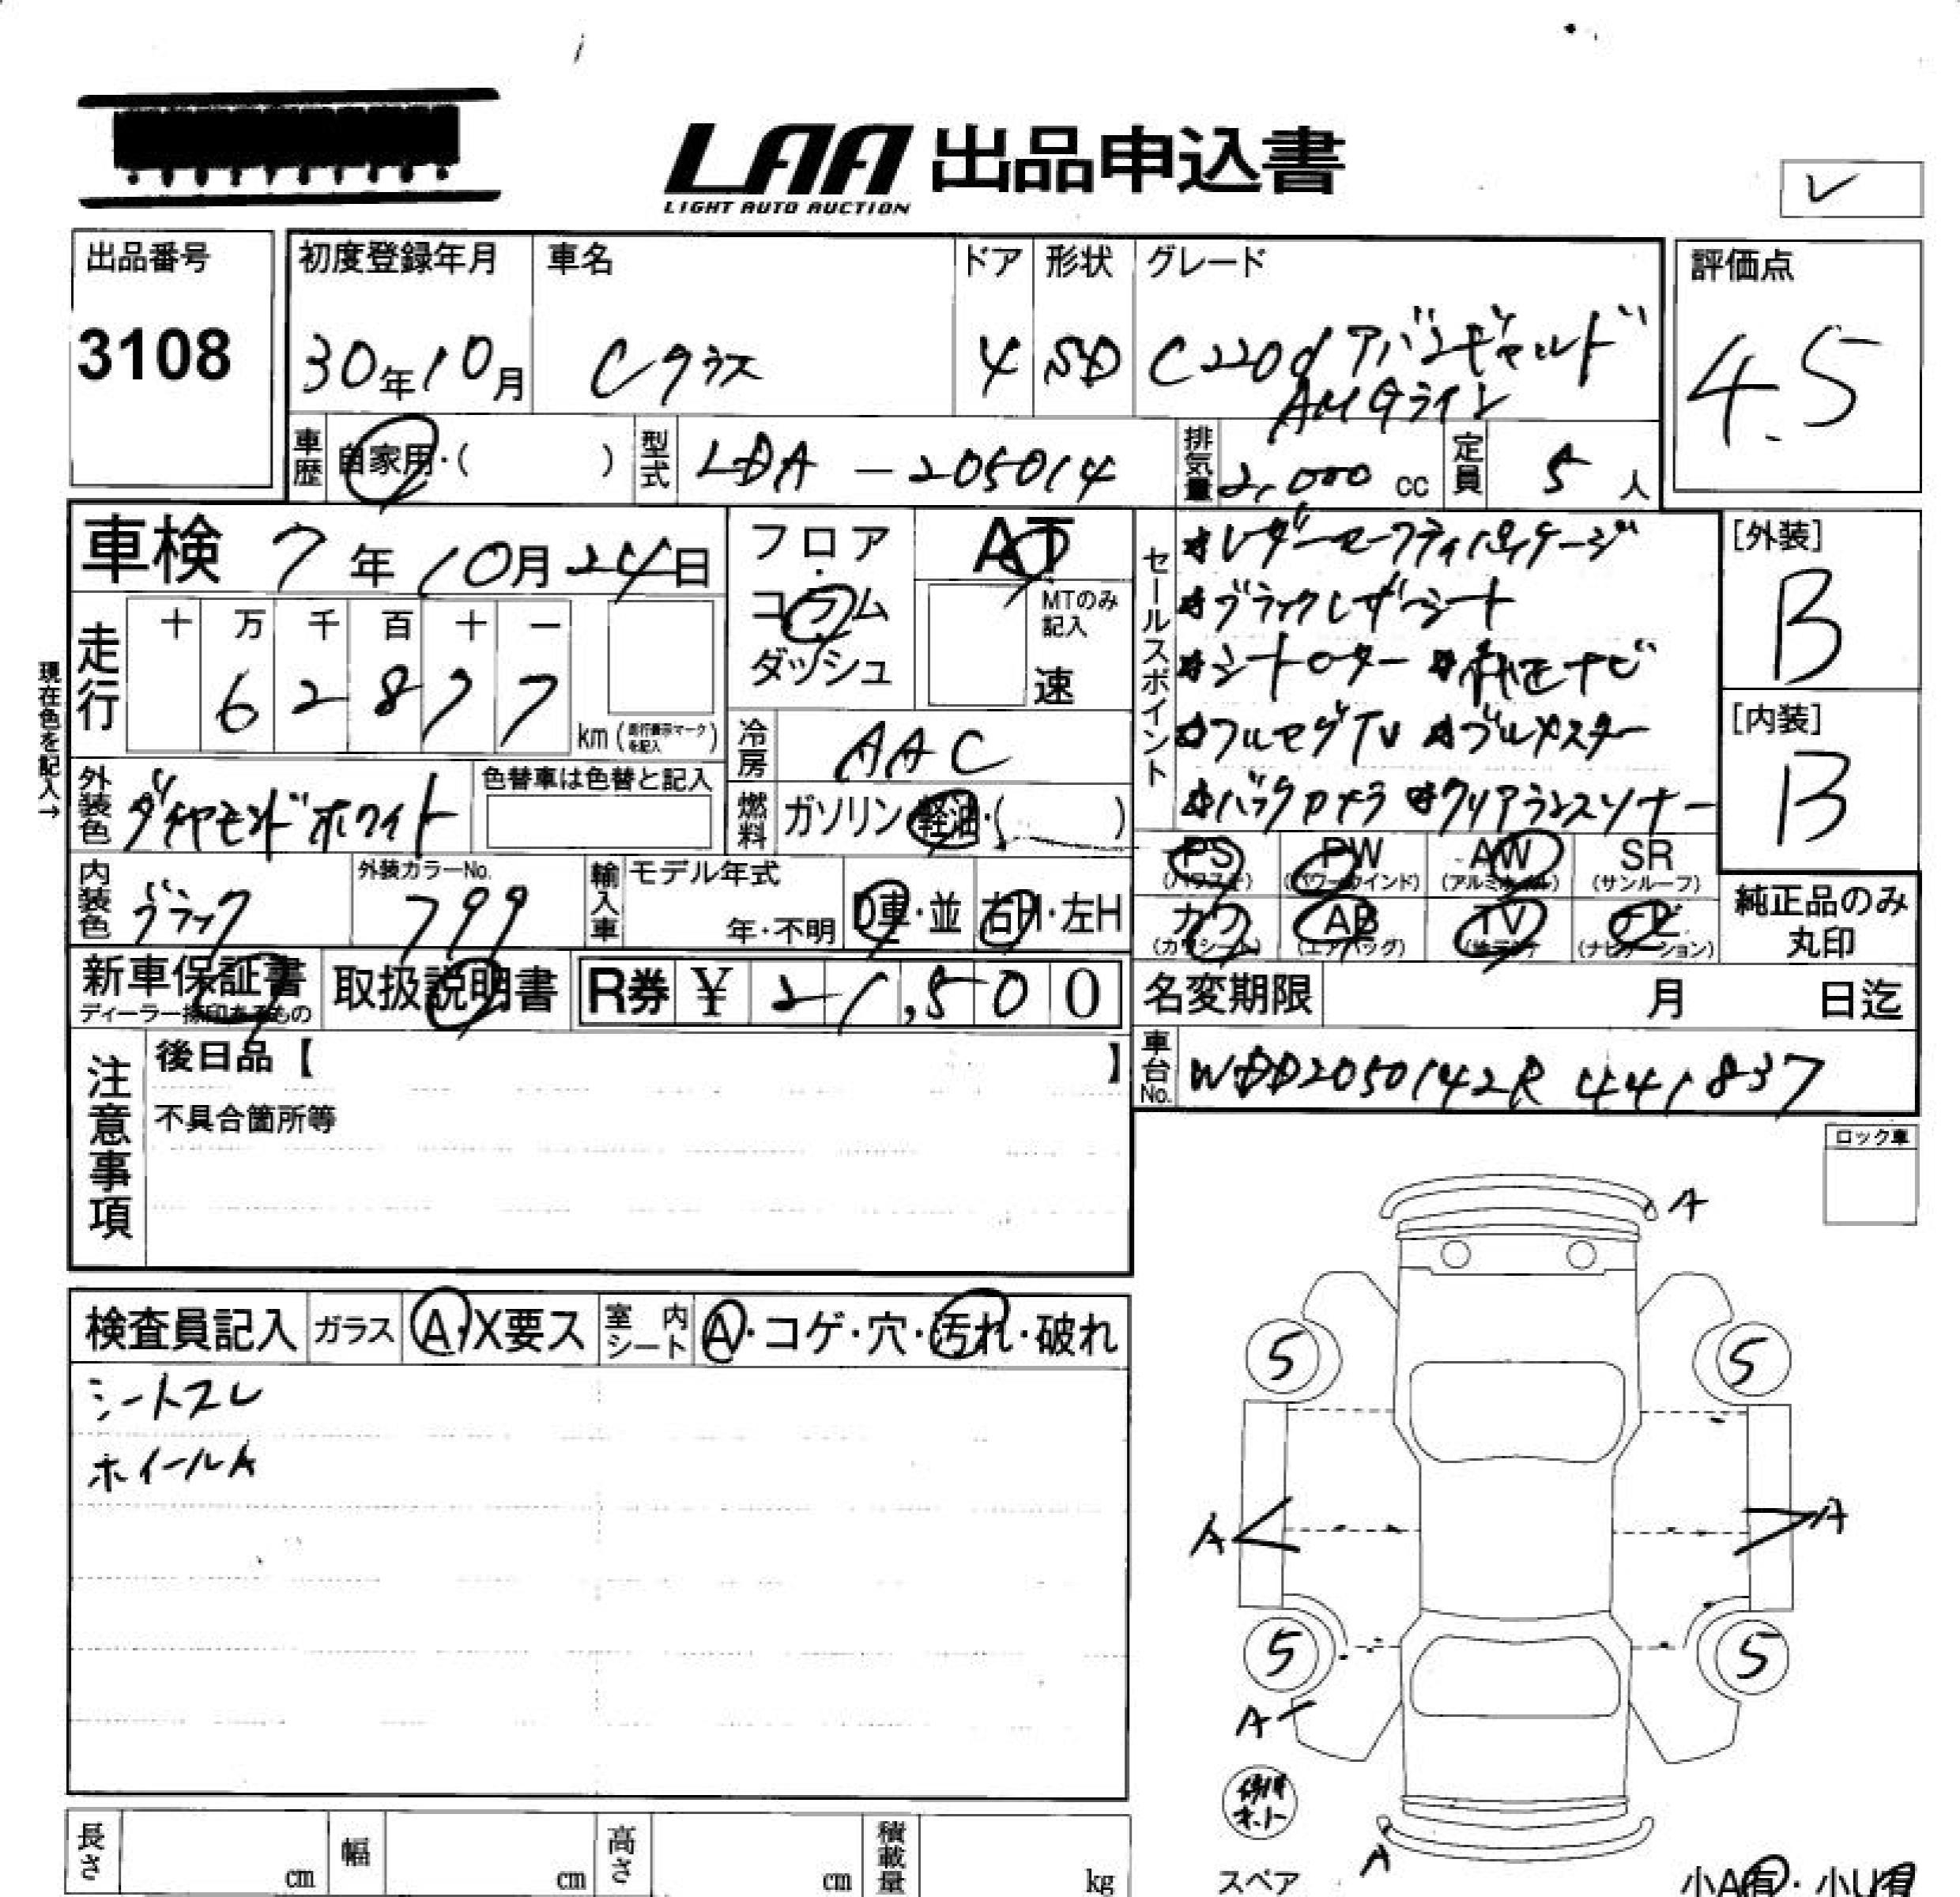 LAA 出品申込書
LIGHT AUTO AUCTION
出品番号
3108
初度登録年月
30年10月
車名
Cクラス
ドア
4
形状
SD
グレード
C220d アバンギャルド
AMGライン
評価点
4.5
車歴
自家用・( )
型式
LDA-205014
排気量
2,000 cc
定員
5人
車検 7年10月24日
フロア・コラム・ダッシュ
AT
MTのみ記入
速
走行
十 万 千 百 十 一
6 2 8 7 7
km (走行表示マークを記入)
現在色を記入→
冷房
AAC
燃料
ガソリン・軽油・( )
外装色
ダイヤモンドホワイト
色替車は色替と記入
内装色
ブラック
外装カラーNo.
799
輸入車
モデル年式
年・不明
D車・並
右H・左H
セールスポイント
*レダーセーフティパッケージ
*ブラックレザーシート
*シートヒーター *純正ナビ
*フルセグTV *ブルメスター
*バックカメラ *クリアランスソナー
[外装]
B
[内装]
B
PS (パワステ)
PW (パワーウインド)
AW (アルミホイル)
SR (サンルーフ)
カワ (カワシート)
AB (エアバッグ)
TV (地デジ)
ナビ (ナビゲーション)
純正品のみ
丸印
新車保証書
ディーラー捺印あるもの
取扱説明書
R券 ¥ 21,500
名変期限 月 日迄
車台No.
WDD2050142R 441837
注意事項
後日品【 】
不具合箇所等
ロック車
検査員記入
ガラス
A・X要ス
室内シート
A・コゲ・穴・汚れ・破れ
シートスレ
ホイールA
A
5 5
A A
5 5
A
A
スペア
小A有・小U有
長さ cm
幅 cm
高さ cm
積載量 kg